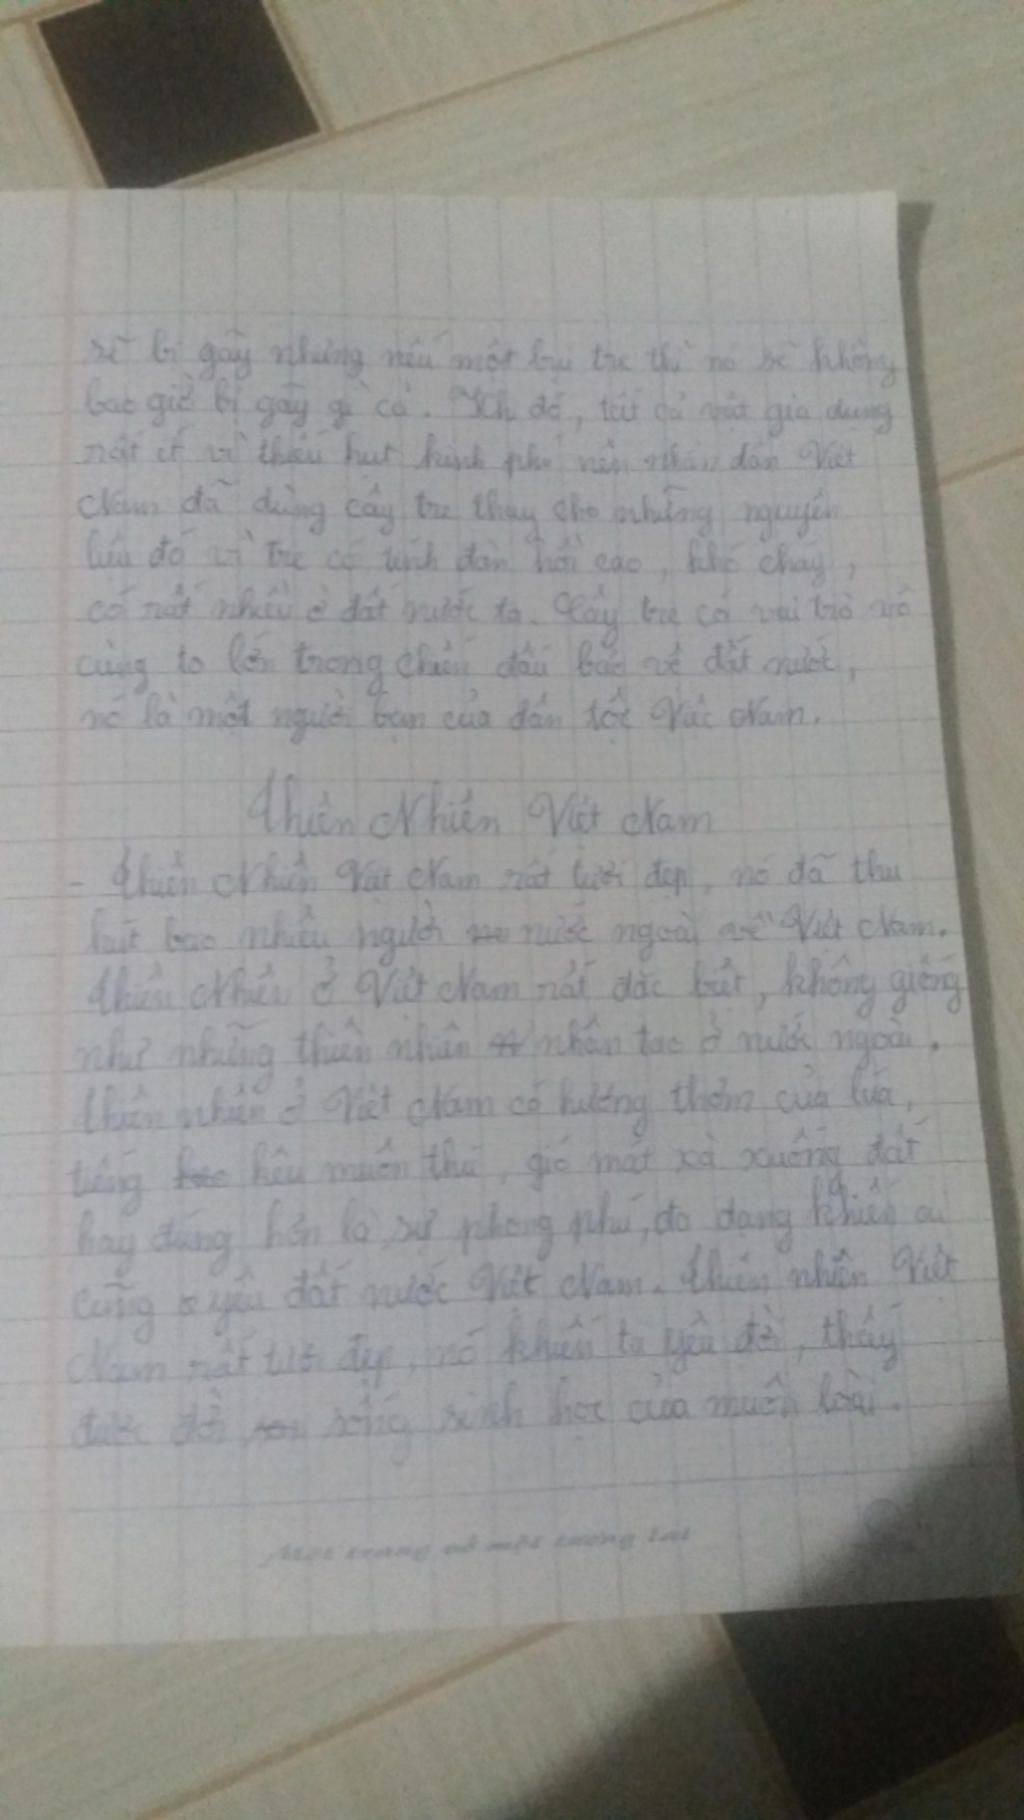 sẽ bị gãy nhưng nếu một bụi tre thì nó sẽ không
bao giờ bị gãy gì cả. Ích đó, tất cả vật gia dụng
rất ít vì thiếu hụt kinh phí nên nhân dân Việt
Nam đã dùng cây tre thay cho những nguyên
liệu đó vì tre có tính đàn hồi cao, khó cháy,
có rất nhiều ở đất nước ta. Cây tre có vai trò vô
cùng to lớn trong chiến đấu bảo vệ đất nước,
nó là một người bạn của dân tộc Việt Nam.
Thiên Nhiên Việt Nam
- Thiên Nhiên Việt Nam rất tươi đẹp, nó đã thu
hút bao nhiêu người nước ngoài về Việt Nam.
Thiên Nhiên ở Việt Nam rất đặc biệt, không giống
như những thiên nhiên nhân tạo ở nước ngoài.
Thiên nhiên ở Việt Nam có hương thơm của lúa,
tiếng kêu muôn thú, gió mát xà xuống đất
hay đúng hơn là sự phong phú, đa dạng khiến ai
cũng yêu đất nước Việt Nam. Thiên nhiên Việt
Nam rất tươi đẹp, nó khiến ta yêu đời, thấy
được đời sống sinh học của muôn loài.
Một trang vở một tương lai